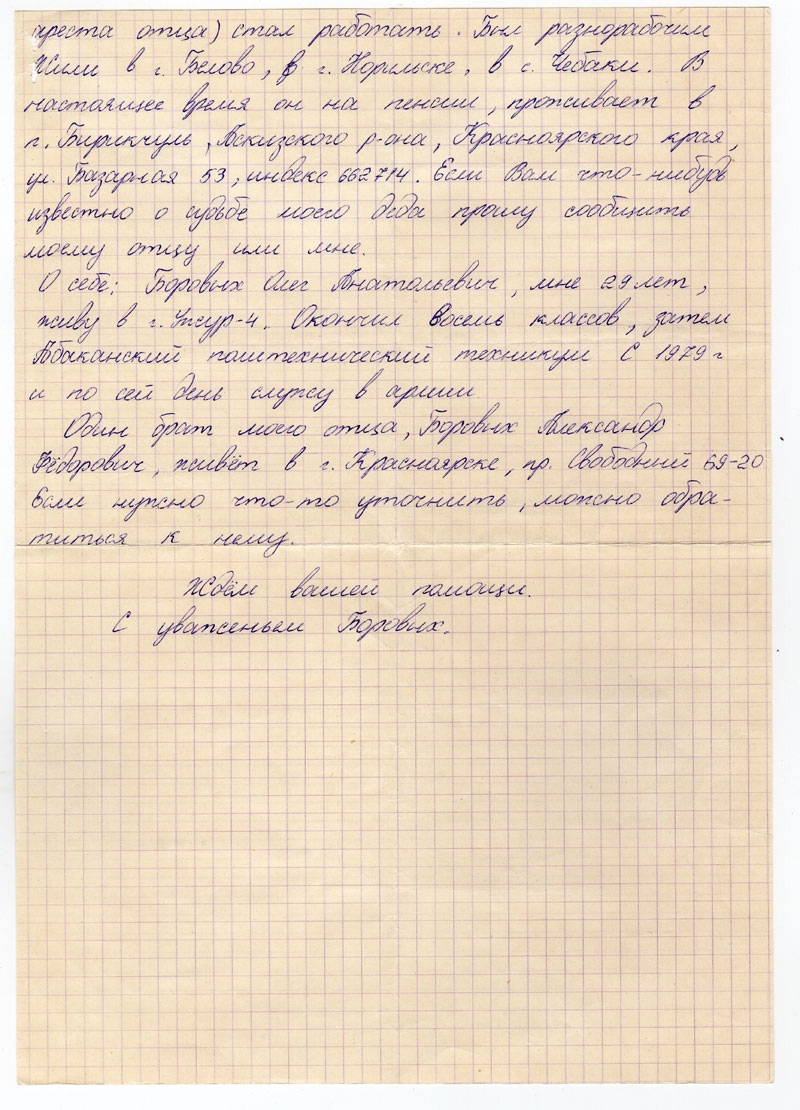 ареста отца) стал работать. Был разнорабочим
Жили в г. Белово, в г. Норильске, в с. Чебаки. В
настоящее время он на пенсии, проживает в
п. Бирикчуль, Аскизского р-она, Красноярского края,
ул. Базарная 53, индекс 662714. Если Вам что-нибудь
известно о судьбе моего деда прошу сообщить
моему отцу или мне.
О себе: Боровых Олег Анатольевич, мне 29 лет,
живу в г. Ужур-4. Окончил восемь классов, затем
Абаканский политехнический техникум С 1979 г
и по сей день служу в армии
Один брат моего отца, Боровых Александр
Фёдорович, живёт в г. Красноярске, пр. Свободный 69-20
Если нужно что-то уточнить, можно обра-
титься к нему.
Ждём вашей помощи.
С уваженьем Боровых.